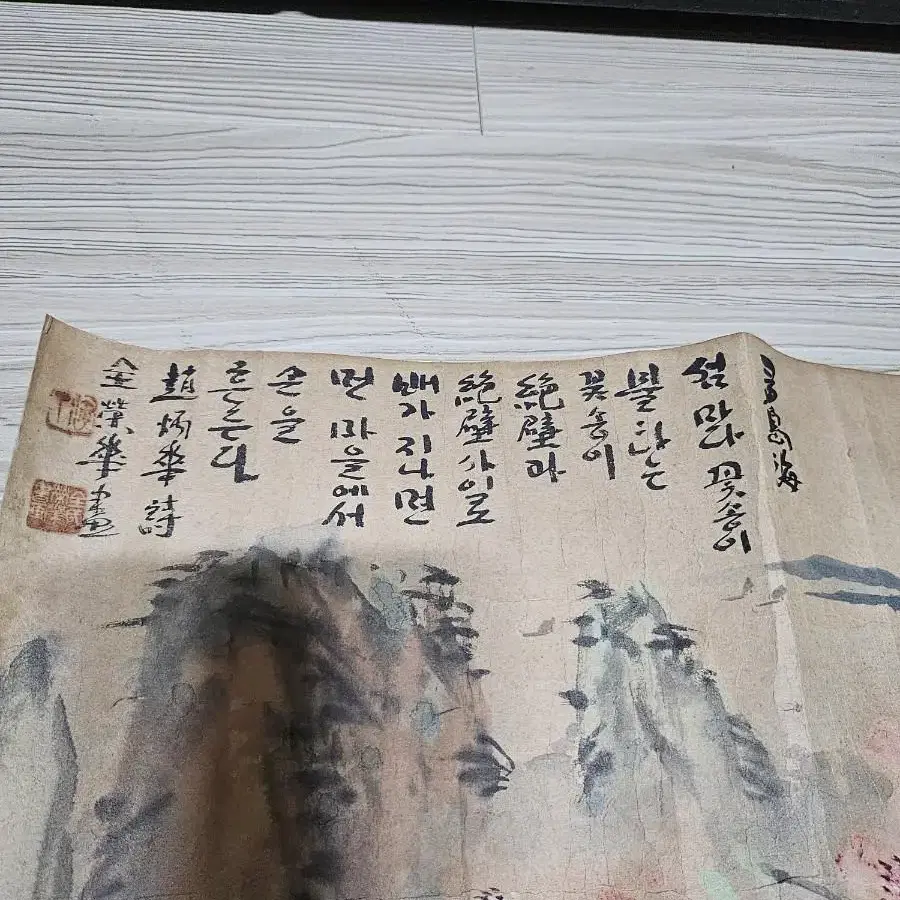 多島海
섬마다 꽃송이
불타는
꽃송이
絶壁과
絶壁 사이로
배가 지나면
먼 마을에서
손을
흔든다
趙炳華 詩
金榮華 畵